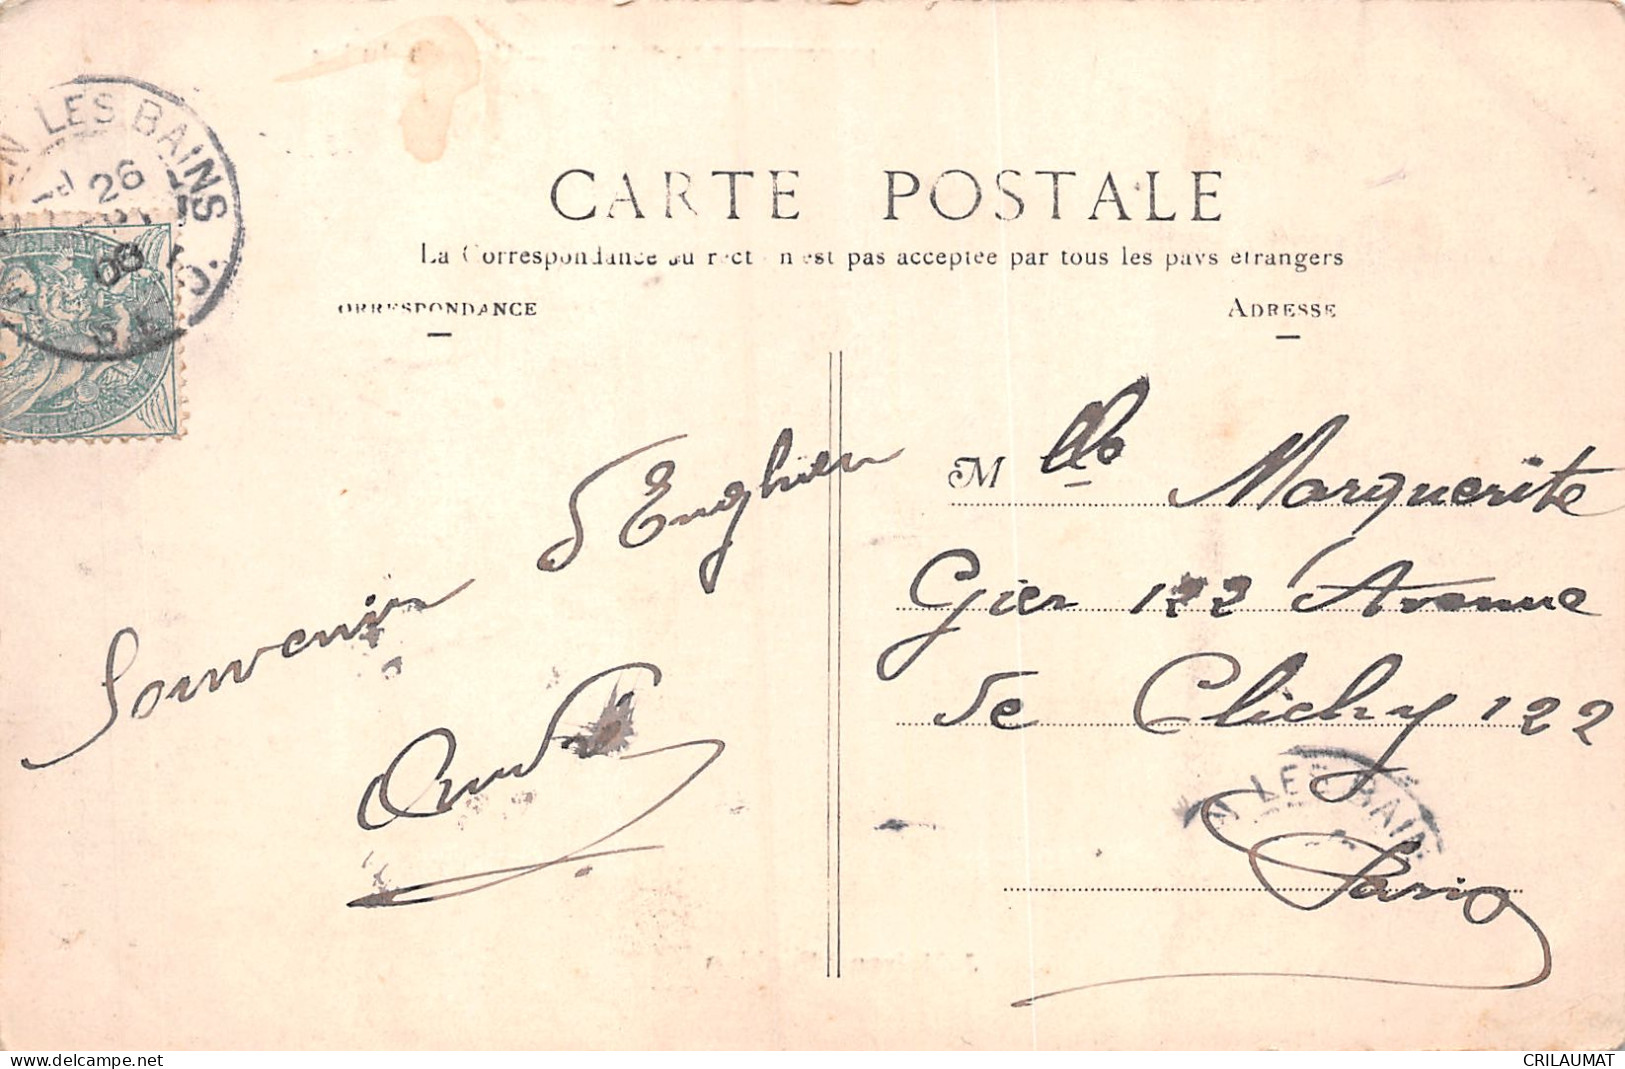 CARTE POSTALE
La Correspondance au recto n'est pas acceptée par tous les pays étrangers
CORRESPONDANCE
ADRESSE
N LES BAINS
26
08
Souvenir d'Enghien
M lle Marguerite
Gier 122 Avenue
de Clichy 122
Paris
N LES BAIN
www.delcampe.net
CRILAUMAT